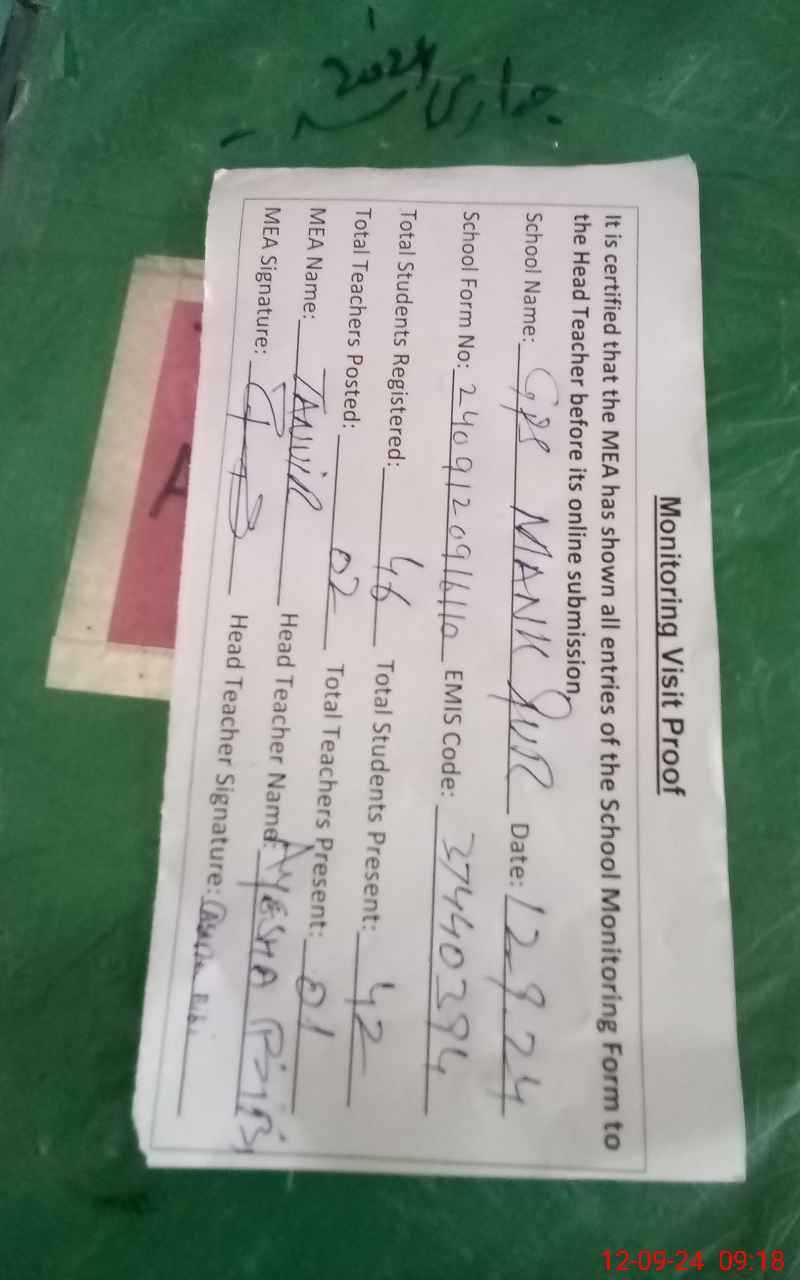 جاری 2024
Monitoring Visit Proof
It is certified that the MEA has shown all entries of the School Monitoring Form to
the Head Teacher before its online submission.
School Name: GPS MANK PUR Date: 12-9-24
School Form No: 240912091610 EMIS Code: 37440394
Total Students Registered: 46 Total Students Present: 42
Total Teachers Posted: 02 Total Teachers Present: 01
MEA Name: TANVIR Head Teacher Name: AYESHA BiBi
MEA Signature: Head Teacher Signature: Bibi
A
12-09-24 09:18